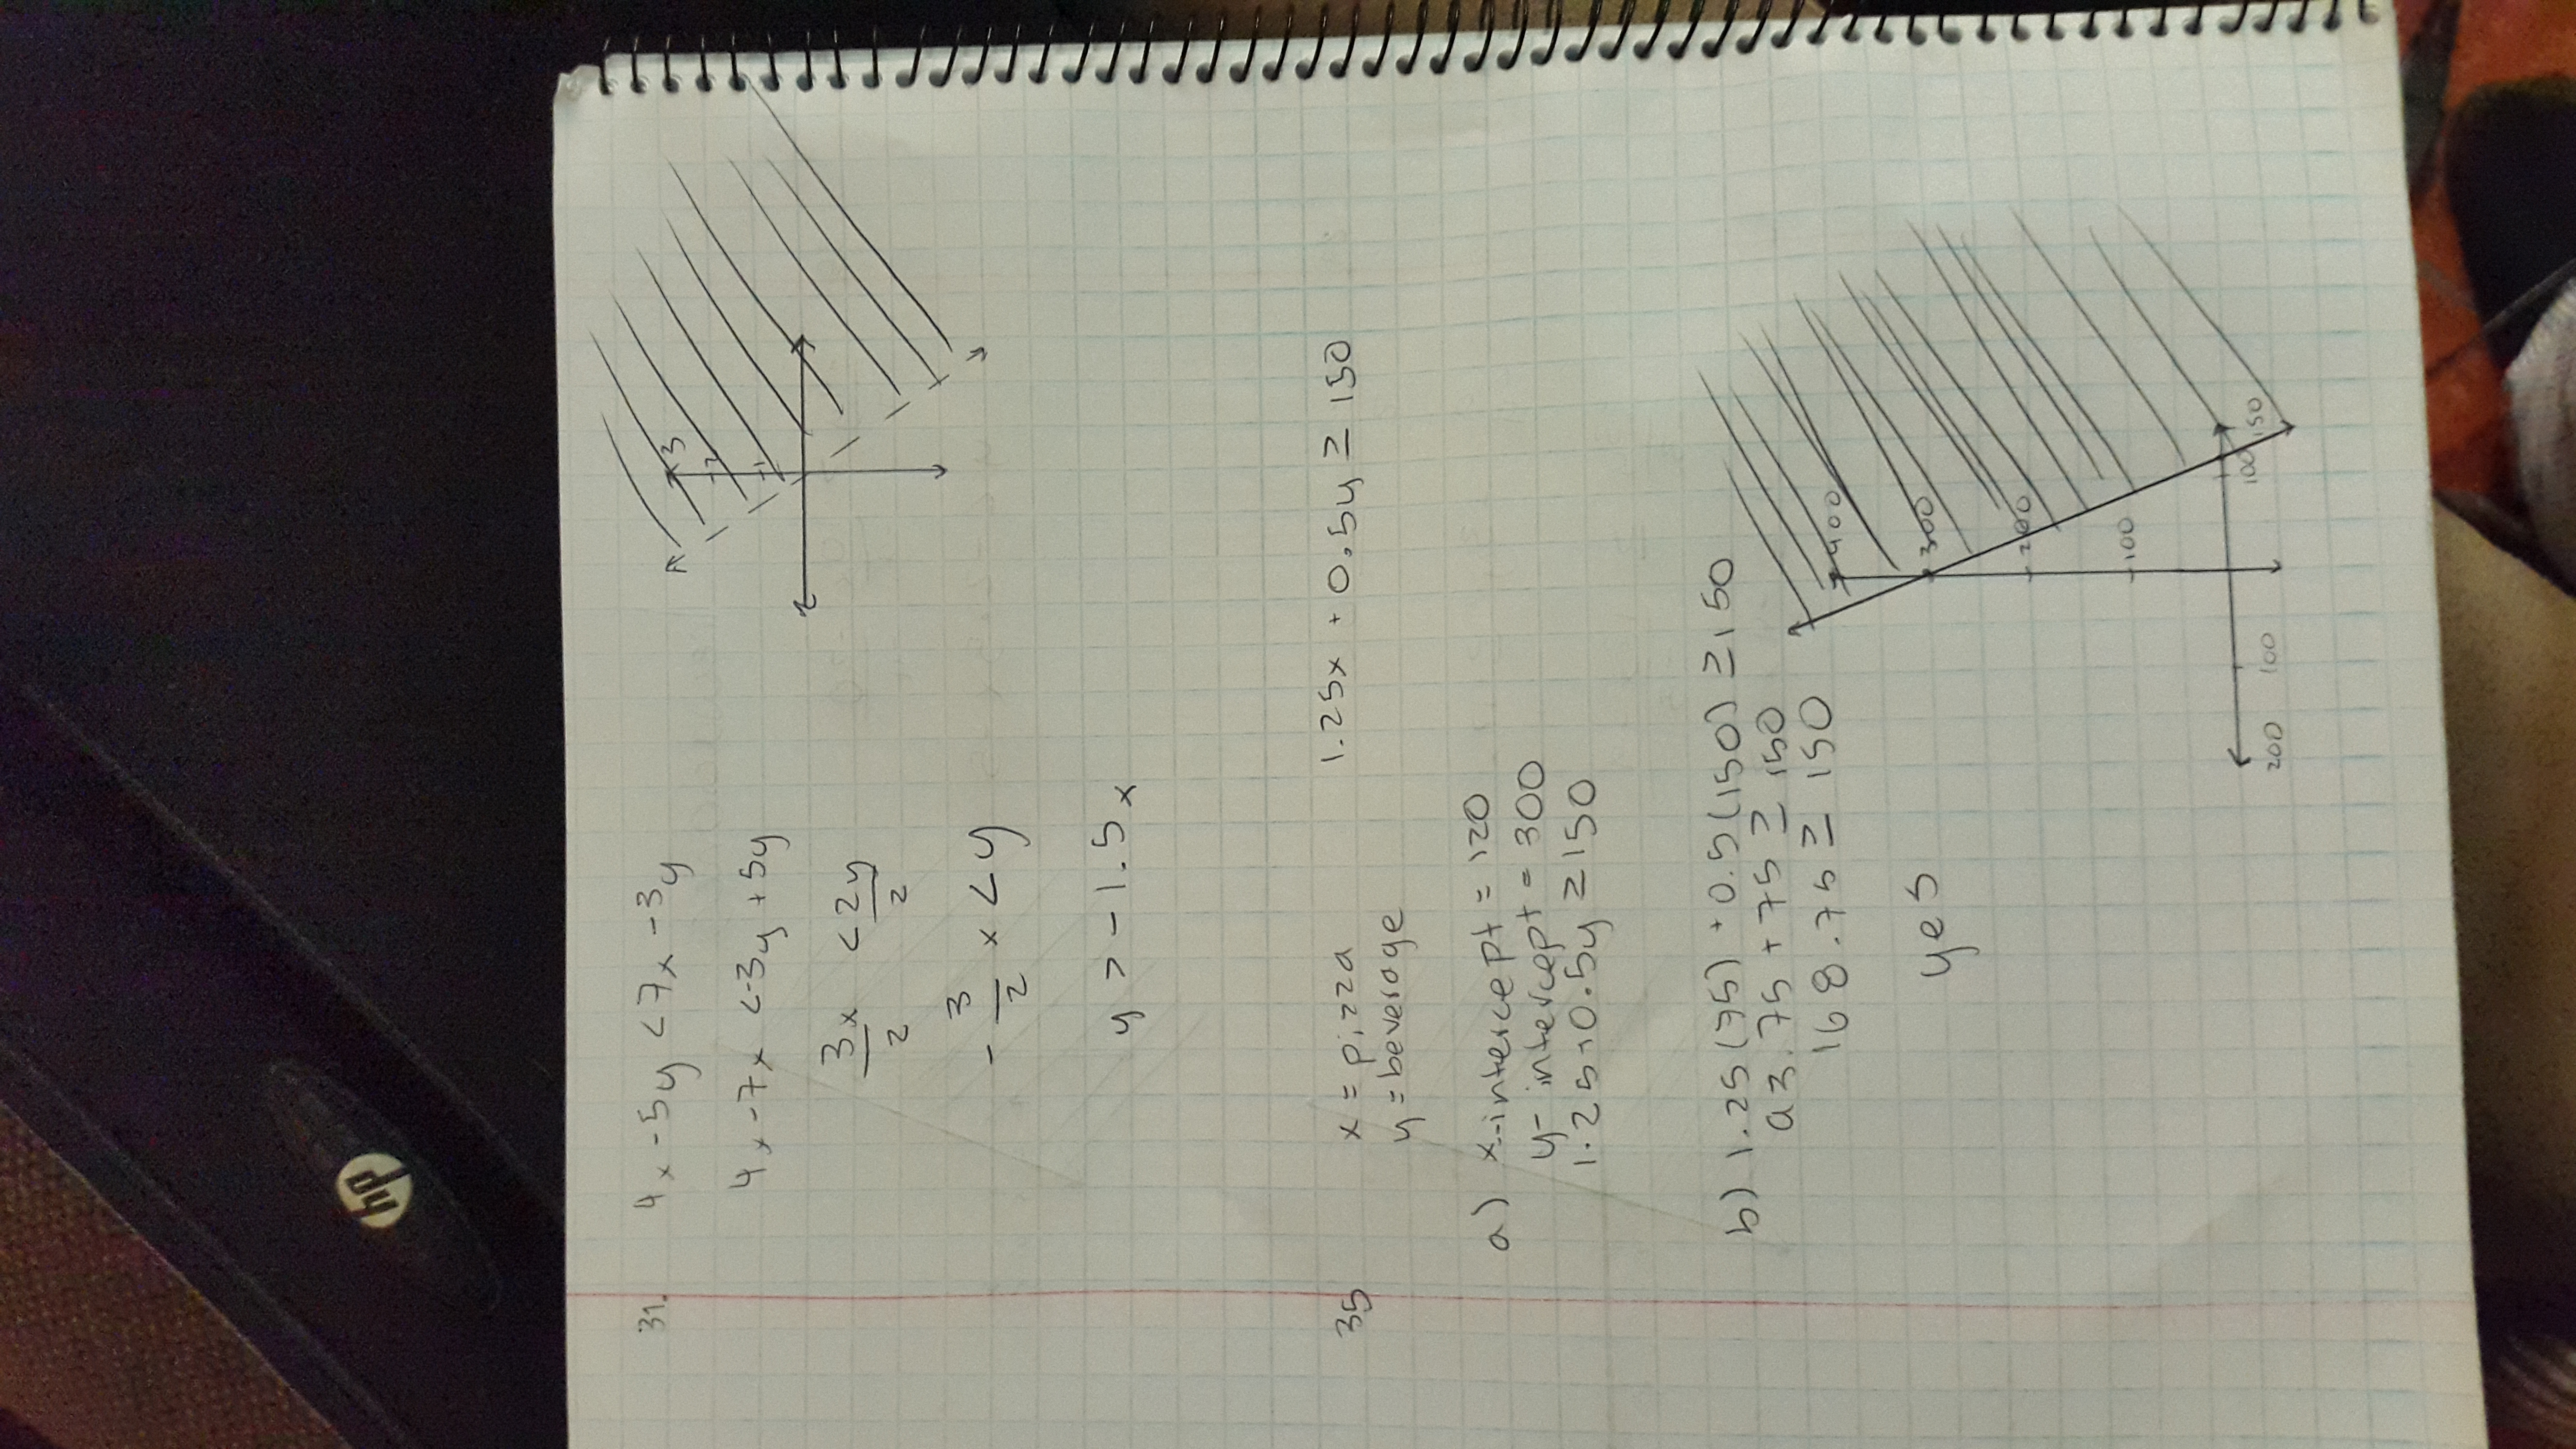 31. 4x-5y<7x-3y
4x-7x<-3y+5y
3x/2 <2y/2
-3/2 x<y
y>-1.5x
3
2
1
35 x=pizza 1.25x+0.5y≥150
y=beverage
a) x-intercept=120
y-intercept=300
1.25+0.5y≥150
b) 1.25(75)+0.5(150)≥150
93.75+75≥150
168.75≥150
yes
400
300
200
100
200 100 100 150
hp